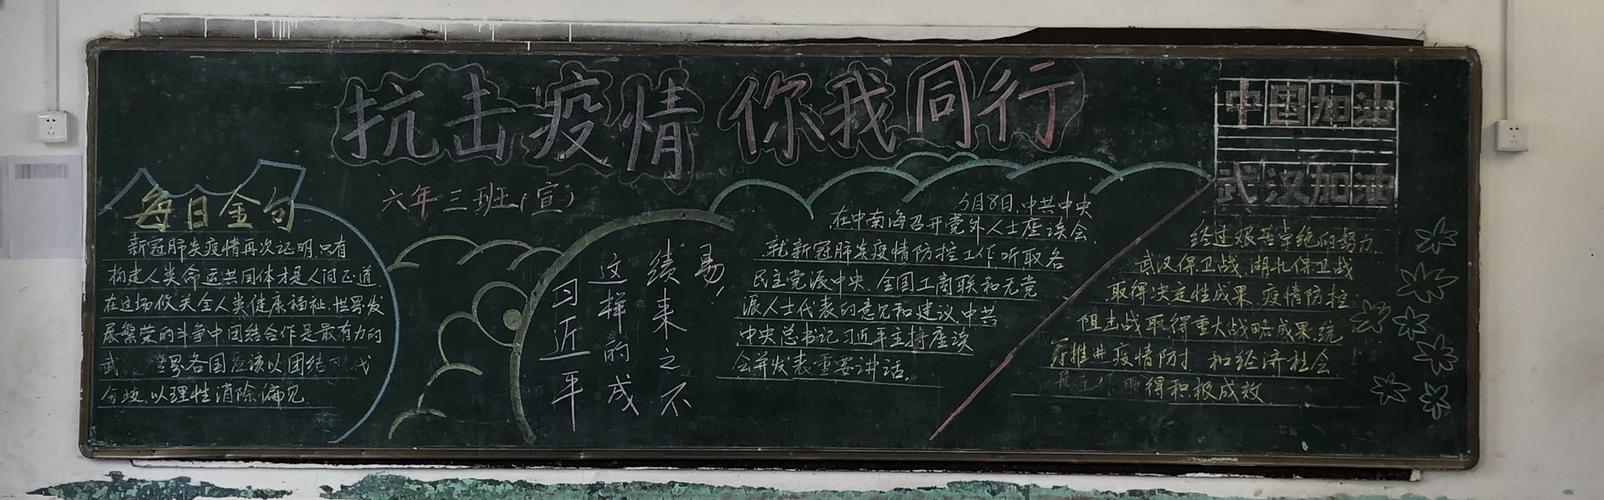 抗击疫情 你我同行
六年三班(宣)
每日金句
新冠肺炎疫情再次证明,只有
构建人类命运共同体才是人间正道
在这场攸关全人类健康福祉、世界发
展繁荣的斗争中团结合作是最有力的
武 世界各国应该以团结 代
分歧,以理性消除偏见
这样的成
绩来之不
易!
习近平
5月8日,中共中央
在中南海召开党外人士座谈会,
就新冠肺炎疫情防控工作听取各
民主党派中央、全国工商联和无党
派人士代表的意见和建议,中共
中央总书记习近平主持座谈
会并发表重要讲话。
中国加油
武汉加油
经过艰苦卓绝的努力
武汉保卫战、湖北保卫战
取得决定性成果,疫情防控
阻击战取得重大战略成果,统
筹推进疫情防 和经济社会
得积极成效